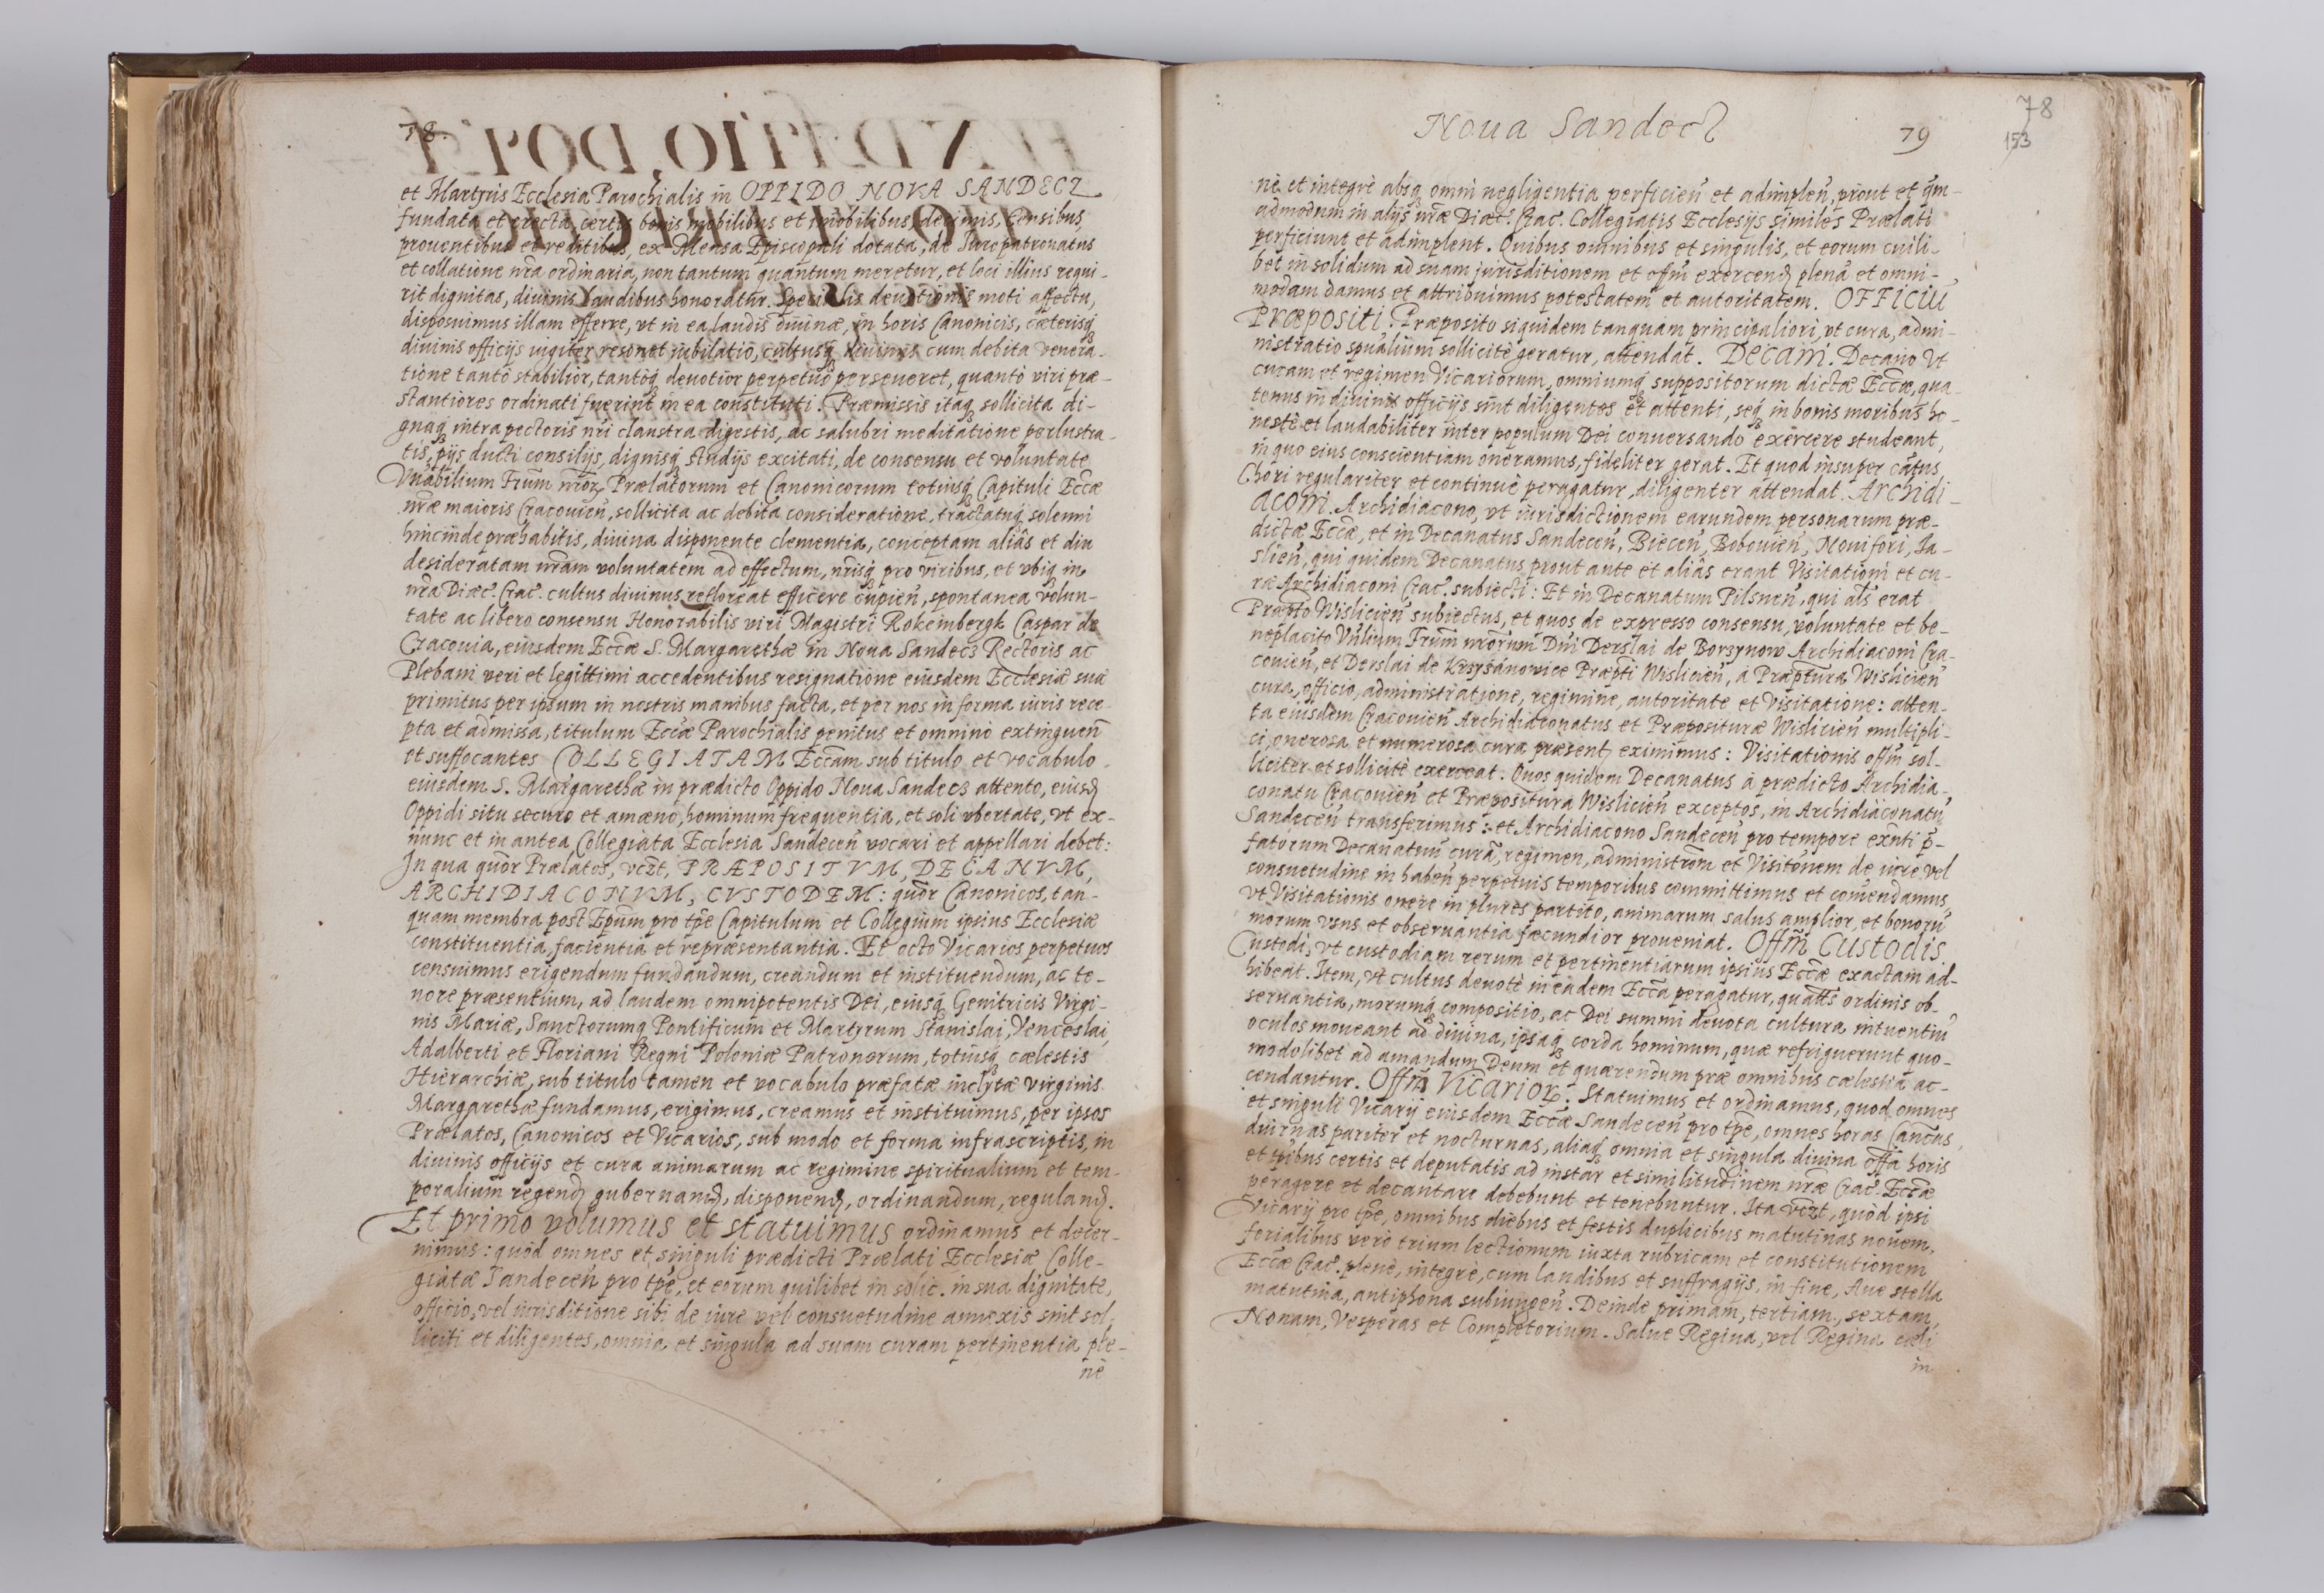 78.
et Martyris Ecclesia Parochialis in OPPIDO NOVA SANDECZ
fundata et erecta, certis bonis mobilibus et imobilibus, decimis, Censibus,
prouentibus et redditibus, ex Mensa Episcopali dotata, de Jurepatronatus
et collatione nr̃a ordinaria, non tantum quantum meretur, et loci illius requi-
rit dignitas, diuinis laudibus honoratur. Specialis deuotionis moti affectu,
disposuimus illam efferre, vt in ea laudis diuinæ, in horis Canonicis, cæterisq̃
diuinis officijs iugiter resonet iubilatio, cultusq̃ diuinus cum debita venera-
tione tantò stabilior, tantoq̃ deuotior perpetuò perseueret, quantò viri præ-
stantiores ordinati fuerint in ea constituti. Præmissis itaq̃ sollicita di-
gnaq̃ intra pectoris nr̃i claustra digestis, ac salubri meditatione perlustra-
tis, pijs ducti consilijs, dignisq̃ studijs excitati, de consensu et voluntate
Vnãbilium Frũm nr̃or̃ Prælatorum et Canonicorum totiusq̃ Capituli Ecc̃æ
nr̃æ maioris Cracouien̄, sollicita ac debita consideratione, tractatuq̃ solenni
hincinde præhabitis, diuina disponente clementia, conceptam aliâs et diu
desideratam nr̃am voluntatem ad effectum, nr̃isq̃ pro viribus, et vbiq̃ in
nr̃a Diæc̃. Crac̃. cultus diuinus refloreat efficere cupien̄, spontanea volun-
tate ac libero consensu Honorabilis viri Magistri Rokembergk Caspar de
Cracouia, eiusdem Ecc̃æ S. Margarethæ in Noua Sandecz Rectoris ac
Plebani veri et legittimi accedentibus resignatione eiusdem Ecclesiæ suæ
primitus per ipsum in nostris manibus facta, et per nos in forma iuris rece-
pta et admissa, titulum Ecc̃æ Parochialis penitus et omnino extinguen̄
et suffocantes COLLEGIATAM Ecc̃am sub titulo et vocabulo
eiusdem S. Margarethæ in prædicto Oppido Noua Sandecz attento, eiusd̃
Oppidi situ securo et amæno, hominum frequentia, et soli vbertate, vt ex-
nunc et in antea Collegiata Ecclesia Sandecen̄ vocari et appellari debet:
In qua quõr Prælatos, vcz̃t, PRÆPOSITVM, DECANVM,
ARCHIDIACONVM, CVSTODEM: quõr Canonicos, tan-
quam membra post Ep̃um pro tp̃e Capitulum et Collegium ipsius Ecclesiæ
constituentia, facientia et repræsentantia. Et octo Vicarios perpetuos
censuimus erigendum fundandum, creandum et instituendum, ac te-
nore præsentium, ad laudem omnipotentis Dei, eiusq̃ Genitricis Virgi-
nis Mariæ, Sanctorumq̃ Pontificum et Martyrum Stanislai, Venceslai,
Adalberti et Floriani Regni Poloniæ Patronorum, totiusq̃ cælestis
Hierarchiæ, sub titulo tamen et vocabulo præfatæ inclytæ virginis
Margarethæ fundamus, erigimus, creamus et instituimus, per ipsos
Prælatos, Canonicos et Vicarios, sub modo et forma infrascriptis, in
diuinis officijs et cura animarum ac regimine spiritualium et tem-
poralium regend̃ gubernand̃, disponend̃, ordinandum, reguland̃.
Et primo volumus et statuimus ordinamus et decer-
nimus: quòd omnes et singuli prædicti Prælati Ecclesiæ Colle-
giatæ Sandecen̄ pro tp̃e, et eorum quilibet in solic. in sua dignitate,
officio, vel iurisditione sibi de iure vel consuetudine annexis sint sol-
liciti et diligentes, omnia et singula ad suam curam pertinentia ple-
nè
Noua Sandecz
79
78
153
nè et integrè absq̃ omni negligentia perficien̄ et adimplen̄, prout et q̃m-
admodum in alijs nr̃æ Diæc̃. Crac̃. Collegiatis Ecclesijs similes Prælati
perficiunt et adimplent. Quibus omnibus et singulis, et eorum cuili-
bet in solidum ad suam jurisditionem et offm̃ exercend̃ plenã et omni-
modam damus et attribuimus potestatem et autoritatem. OFFICIŨ
Præpositi. Præposito siquidem tanquam principaliori, vt cura, admi-
nistratio spũalium sollicitè geratur, attendat. Decani. Decano vt
curam et regimen Vicariorum, omniumq̃ suppositorum dictæ Ecc̃æ, qua-
tenus in diuinis officijs sint diligentes et attenti, seq̃ in bonis moribus ho-
nestè et laudabiliter inter populum Dei conuersando exercere studeant,
in quo eius conscientiam oneramus, fideliter gerat. Et quod insuper cãtus
Chori regulariter et continuè peragatur, diligenter attendat. Archidi-
aconi. Archidiacono, vt iurisdictionem earundem personarum præ-
dictæ Ecc̃æ, et in Decanatus Sandecen̄, Biecen̄, Bobouien̄, Nouifori, Ja-
slien̄, qui quidem Decanatus prout ante et aliâs erant Visitationi et cu-
ræ Archidiaconi Crac̃. subiecti: Et in Decanatum Pilsnen̄, qui als̃ erat
Præpto Wislicien̄ subiectus, et quos de expresso consensu, voluntate et be-
neplacito Vñlium Frũm nr̃orum Dñi Derslai de Borzynow Archidiaconi Cra-
couien̄, et Derslai de Krzyżanowice Præpti Wislicien̄, à Præptura Wislicien̄
cura, officio, administratione, regimine, autoritate et Visitatione: atten-
ta eiusdem Cracouien̄ Archidiaconatus et Præposituræ Wislicien̄ multipli-
ci, onerosa et numerosa cura præsent̃ eximimus: Visitationis offm̃ sol-
liciter et sollicitè exerceat. Quos quidem Decanatus à prædicto Archidia-
conatu Cracouien̄ et Præpositura Wislicien̄ exceptos, in Archidiaconatũ
Sandecen̄ transferimus: et Archidiacono Sandecen̄ pro tempore exñti p̃-
fatorum Decanatuũ curã, regimen, administrõm et Visitõnem de iure vel
consuetudine in haben̄ perpetuis temporibus committimus et comẽndamus,
vt Visitationis onere in plures partito, animarum salus amplior, et bonorũ
morum vsus et obseruantia fæcundior proueniat. Offm̃ Custodis.
Custodi, vt custodiam rerum et pertinentiarum ipsius Ecc̃æ exactam ad-
hibeat. Item, vt cultus deuotè in eadem Ecc̃a peragatur, quatts̃ ordinis ob-
seruantia, morumq̃ compositio, ac Dei summi deuota cultura intuentiũ
oculos moueant ad diuina, ipsaq̃ corda hominum, quæ refriguerunt quo-
modolibet ad amandum Deum et quærendum præ omnibus cælestia ac-
cendantur. Offm̃ Vicarior̃. Statuimus et ordinamus, quod omnes
et singuli Vicarij eiusdem Ecc̃æ Sandecen̄ pro tp̃e, omnes horas Canc̃as,
diurnas pariter et nocturnas, aliaq̃ omnia et singula diuina offa̴ horis
et tp̃ibus certis et deputatis ad instar et similitudinem nr̃æ Crac̃. Ecc̃æ
peragere et decantare debebunt et tenebuntur. Ita vcz̃t, quòd ipsi
Vicarij pro tp̃e, omnibus diebus et festis duplicibus matutinas nouem,
ferialibus verò trium lectionum iuxta rubricam et constitutionem
Ecc̃æ Crac̃. plenè, integrè, cum laudibus et suffragijs, in fine, Aue stella
matutina, antiphona subiungen̄. Deinde primam, tertiam, sextam,
Nonam, Vesperas et Completorium. Salue Regina, vel Regina cæli
in